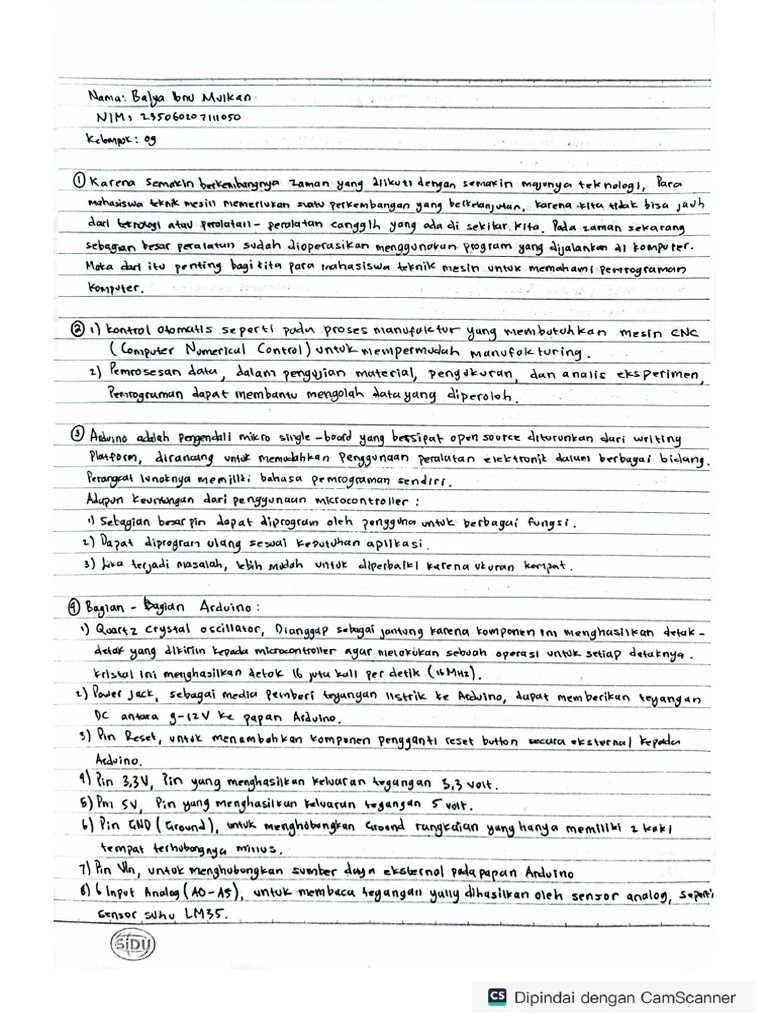 Nama: Balya Ibnu Mulkan.
NIM: 235060207111050
Kelompok: 09
① Karena semakin berkembangnya zaman yang diikuti dengan semakin majunya teknologi, Para
mahasiswa teknik mesin memerlukan suatu perkembangan yang berkelanjutan, karena kita tidak bisa jauh
dari teknologi atau peralatan-peralatan canggih yang ada di sekitar kita. Pada zaman sekarang
sebagian besar peralatan sudah dioperasikan menggunakan program yang dijalankan di komputer.
Maka dari itu penting bagi kita para mahasiswa teknik mesin untuk memahami pemrograman
komputer.
② 1) kontrol otomatis seperti pada proses manufaktur yang membutuhkan mesin CNC
(Computer Numerical Control) untuk mempermudah manufakturing.
2) Pemrosesan data, dalam pengujian material, pengukuran, dan analis eksperimen,
Pemrograman dapat membantu mengolah data yang diperoleh.
③ Arduino adalah pengendali mikro single-board yang bersifat open source diturunkan dari writing
Platform, dirancang untuk memudahkan penggunaan peralatan elektronik dalam berbagai bidang.
Perangkat lunaknya memiliki bahasa pemrograman sendiri.
Adapun keuntungan dari penggunaan microcontroller :
1) Sebagian besar pin dapat diprogram oleh pengguna untuk berbagai fungsi.
2) Dapat diprogram ulang sesuai kebutuhan aplikasi.
3) Jika terjadi masalah, lebih mudah untuk diperbaiki karena ukuran kompat.
④ Bagian - Bagian Arduino :
1) Quartz crystal oscillator, Dianggap sebagai jantung karena komponen ini menghasilkan detak-
detak yang dikirim kepada microcontroller agar melakukan sebuah operasi untuk setiap detaknya.
kristal ini menghasilkan detak 16 juta kali per detik (16 MHz).
2) Power Jack, sebagai media pemberi tegangan listrik ke Arduino, dapat memberikan tegangan
DC antara 9-12V ke papan Arduino.
3) Pin Reset, untuk menambahkan komponen pengganti reset button secara eksternal kepada
Arduino.
4) Pin 3,3V, Pin yang menghasilkan keluaran tegangan 3,3 volt.
5) Pin 5V, Pin yang menghasilkan keluaran tegangan 5 volt.
6) Pin GND (Ground), untuk menghubungkan Ground rangkaian yang hanya memiliki 2 kaki
tempat terhubungnya minus.
7) Pin Vin, untuk menghubungkan sumber daya eksternal pada papan Arduino
8) 6 Input Analog (A0-A5), untuk membaca tegangan yang dihasilkan oleh sensor analog, seperti
sensor suhu LM35.
SIDU
CS Dipindai dengan CamScanner